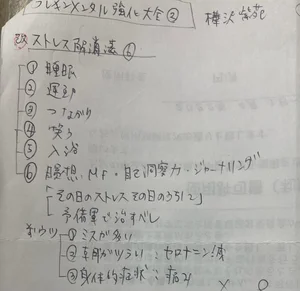 メンタル強化大全② 樺沢紫苑
ストレス解消法⑥
① 睡眠
② 運動
③ つながり
④ 笑う
⑤ 入浴
⑥ 瞑想、MF・自己洞察力・ジャーナリング
「その日のストレスその日のうちに」
「予備軍で治すべし
①ミスが多い
②朝がツラい：セロトニン減
③身体的症状：痛み
× ○